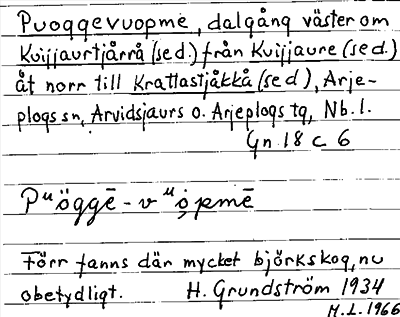 Puoggevuopme, dalgång väster om
Kuijjaurtjårrå (se d.) från Kuijjaure (se d.)
åt norr till Krattastjåkkå (se d), Arje-
plogs sn, Arvidsjaurs o. Arjeplogs tg, Nb. l.
Gn 18 c 6
Pᵘöggē - vᵘo̦pmē
Förr fanns där mycket björkskog, nu
obetydligt. H. Grundström 1934
M.L. 1966